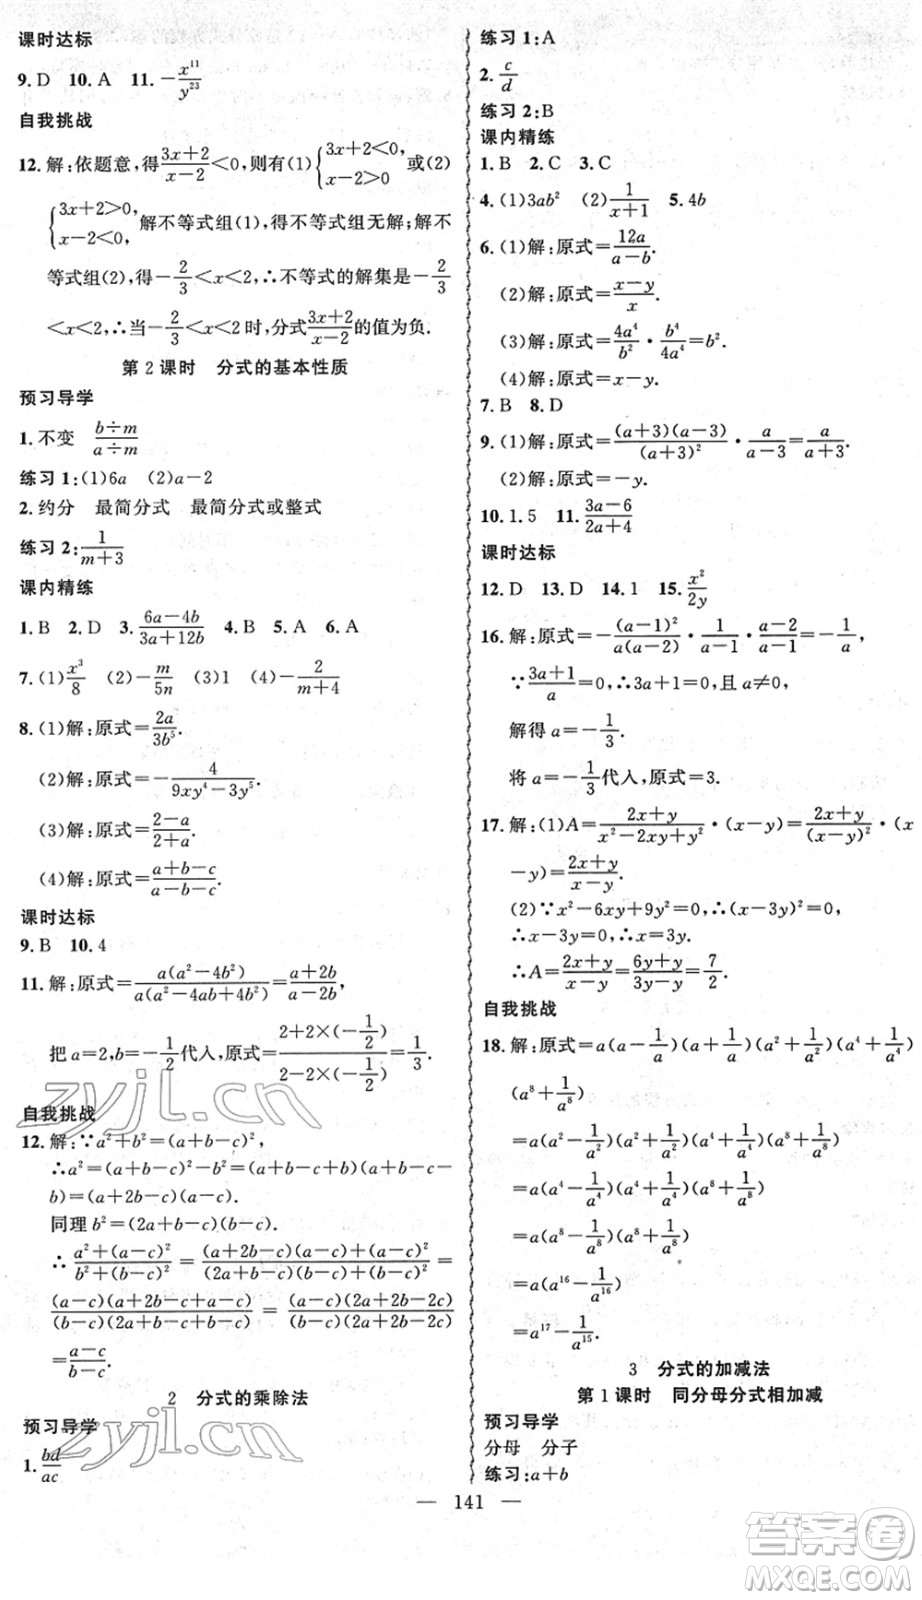 课时达标
9.D 10.A 11.－x¹¹/y²³
自我挑战
12.解:依题意,得(3x+2)/(x−2)<0,则有(1){3x+2<0, x−2>0 或(2)
{3x+2>0, x−2<0, 解不等式组(1),得不等式组无解;解不
等式组(2),得−2/3<x<2,∴不等式的解集是−2/3
<x<2,∴当−2/3<x<2时,分式(3x+2)/(x−2)的值为负.
第2课时 分式的基本性质
预习导学
1.不变 (b÷m)/(a÷m)
练习1:(1)6a (2)a−2
2.约分 最简分式 最简分式或整式
练习2:1/(m+3)
课内精练
1.B 2.D 3.(6a−4b)/(3a+12b) 4.B 5.A 6.A
7.(1)x³/8 (2)−m/5n (3)1 (4)−2/(m+4)
8.(1)解:原式=2a/3b⁵.
(2)解:原式=−4/(9xy⁴−3y⁵).
(3)解:原式=(2−a)/(2+a).
(4)解:原式=(a+b−c)/(a−b−c).
课时达标
9.B 10.4
11.解:原式=a(a²−4b²)/a(a²−4ab+4b²)=(a+2b)/(a−2b),
把a=2,b=−1/2代入,原式=(2+2×(−1/2))/(2−2×(−1/2))=1/3.
自我挑战
12.解:∵a²+b²=(a+b−c)²,
∴a²=(a+b−c)²−b²=(a+b−c+b)(a+b−c−
b)=(a+2b−c)(a−c).
同理b²=(2a+b−c)(b−c).
∴(a²+(a−c)²)/(b²+(b−c)²)=((a+2b−c)(a−c)+(a−c)²)/((2a+b−c)(b−c)+(b−c)²)=
((a−c)(a+2b−c+a−c))/((b−c)(2a+b−c+b−c))=((a−c)(2a+2b−2c))/((b−c)(2a+2b−2c))
=(a−c)/(b−c).
2 分式的乘除法
预习导学
1.bd/ac
练习1:A
2.c/d
练习2:B
课内精练
1.B 2.C 3.C
4.(1)3ab² (2)1/(x+1) 5.4b
6.(1)解:原式=12a/(a−b).
(2)解:原式=(x−y)/x.
(3)解:原式=4a⁴/b²·b⁴/4a⁴=b².
(4)解:原式=x−y.
7.B 8.D
9.(1)解:原式=(a+3)(a−3)/(a+3)²·a/(a−3)=a/(a+3).
(2)解:原式=−y.
10.1.5 11.(3a−6)/(2a+4)
课时达标
12.D 13.D 14.1 15.x²/2y
16.解:原式=−(a−1)²/a(a−2)·1/(a−1)·(a−2)/(a−1)=−1/a,
∵(3a+1)/a=0,∴3a+1=0,且a≠0,
解得a=−1/3.
将a=−1/3代入,原式=3.
17.解:(1)A=(2x+y)/(x²−2xy+y²)·(x−y)=(2x+y)/(x−y)²·(x
−y)=(2x+y)/(x−y).
(2)∵x²−6xy+9y²=0,∴(x−3y)²=0,
∴x−3y=0,∴x=3y,
∴A=(2x+y)/(x−y)=(6y+y)/(3y−y)=7/2.
自我挑战
18.解:原式=a(a−1/a)(a+1/a)(a²+1/a²)(a⁴+1/a⁴)
(a⁸+1/a⁸)
=a(a²−1/a²)(a²+1/a²)(a⁴+1/a⁴)(a⁸+1/a⁸)
=a(a⁴−1/a⁴)(a⁴+1/a⁴)(a⁸+1/a⁸)
=a(a⁸−1/a⁸)(a⁸+1/a⁸)
=a(a¹⁶−1/a¹⁶)
=a¹⁷−1/a¹⁵.
3 分式的加减法
第1课时 同分母分式相加减
预习导学
分母 分子
练习:a+b
— 141 —
zyjl.cn
zyjl.cn
答案圈
MXQE.COM